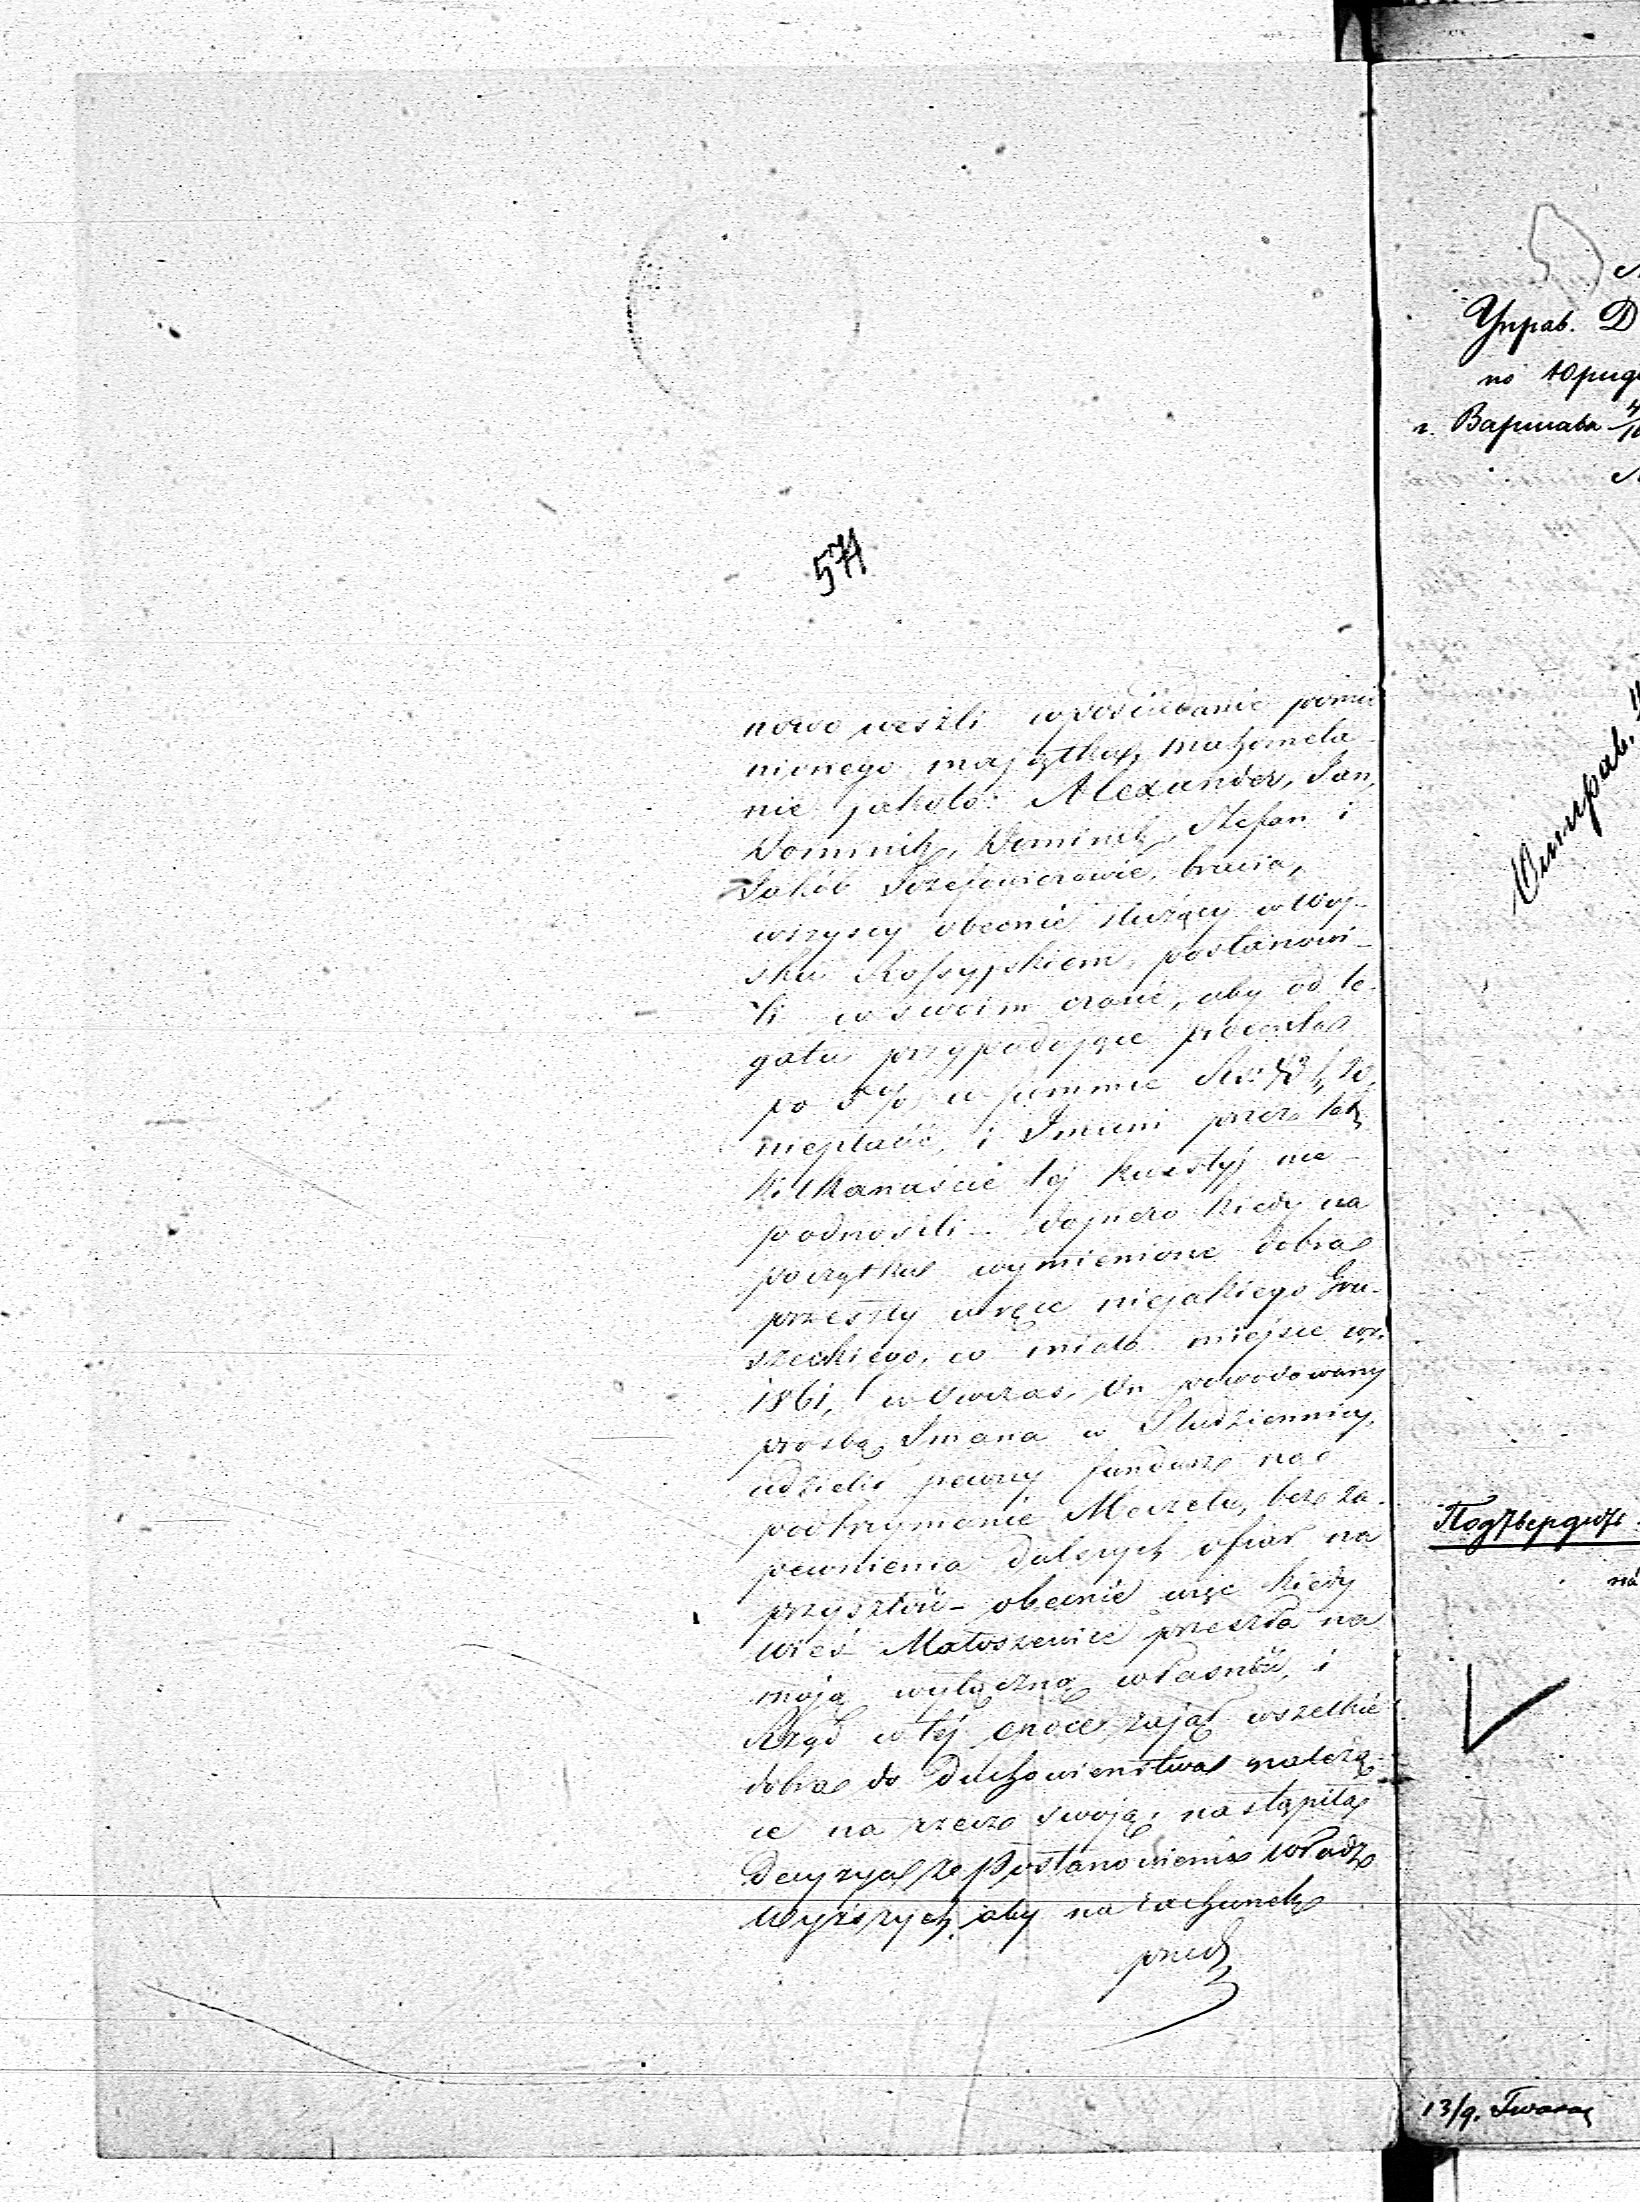 571
nowo weszli w posiadanie pomie
nionego majątku, mahometa
nie jakoto: Alexander, Jan,
Dominik, Dominik, Stefan i
Jakób Józefowiczowie, bracia,
wszyscy obecnie służący w Woj-
sku Rossyjskiem, postanowi-
li w swoim czasie, aby od le-
gatu przypadające procenta
po 5% w summie Rsr
niepłacić, i Imieni przez lat
kilkanaście tej kwestyi nie
podnosili - dopiero kiedy na
początku wymienione dobra
przeszły w ręce niejakiego Gru-
szeckiego, co miało miejsce w r.
1861, wówczas, On powodowany
prośbą Imana w Studziennicy,
udzielił pewny fundusz na
podtrzymanie Meczetu, bez za-
pewnienia dalszych ofiar na
przyszłość - obecnie więc kiedy
wieś Małoszewice przeszła na
moją wyłączną własność, i
Rząd w tej epoce zajął wszelkie
dobra do Duchowieństwa należą-
ce na rzecz swoją, nastąpiła
Decyzya z Postanowienia władz
Wyższych, aby na rachunek
Управ. Д
по Юриди
г. Варшава
Подтвердить
13/9.